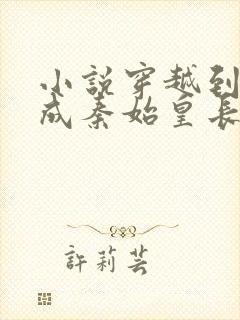 小説穿越到
成秦始皇長
許莉芸